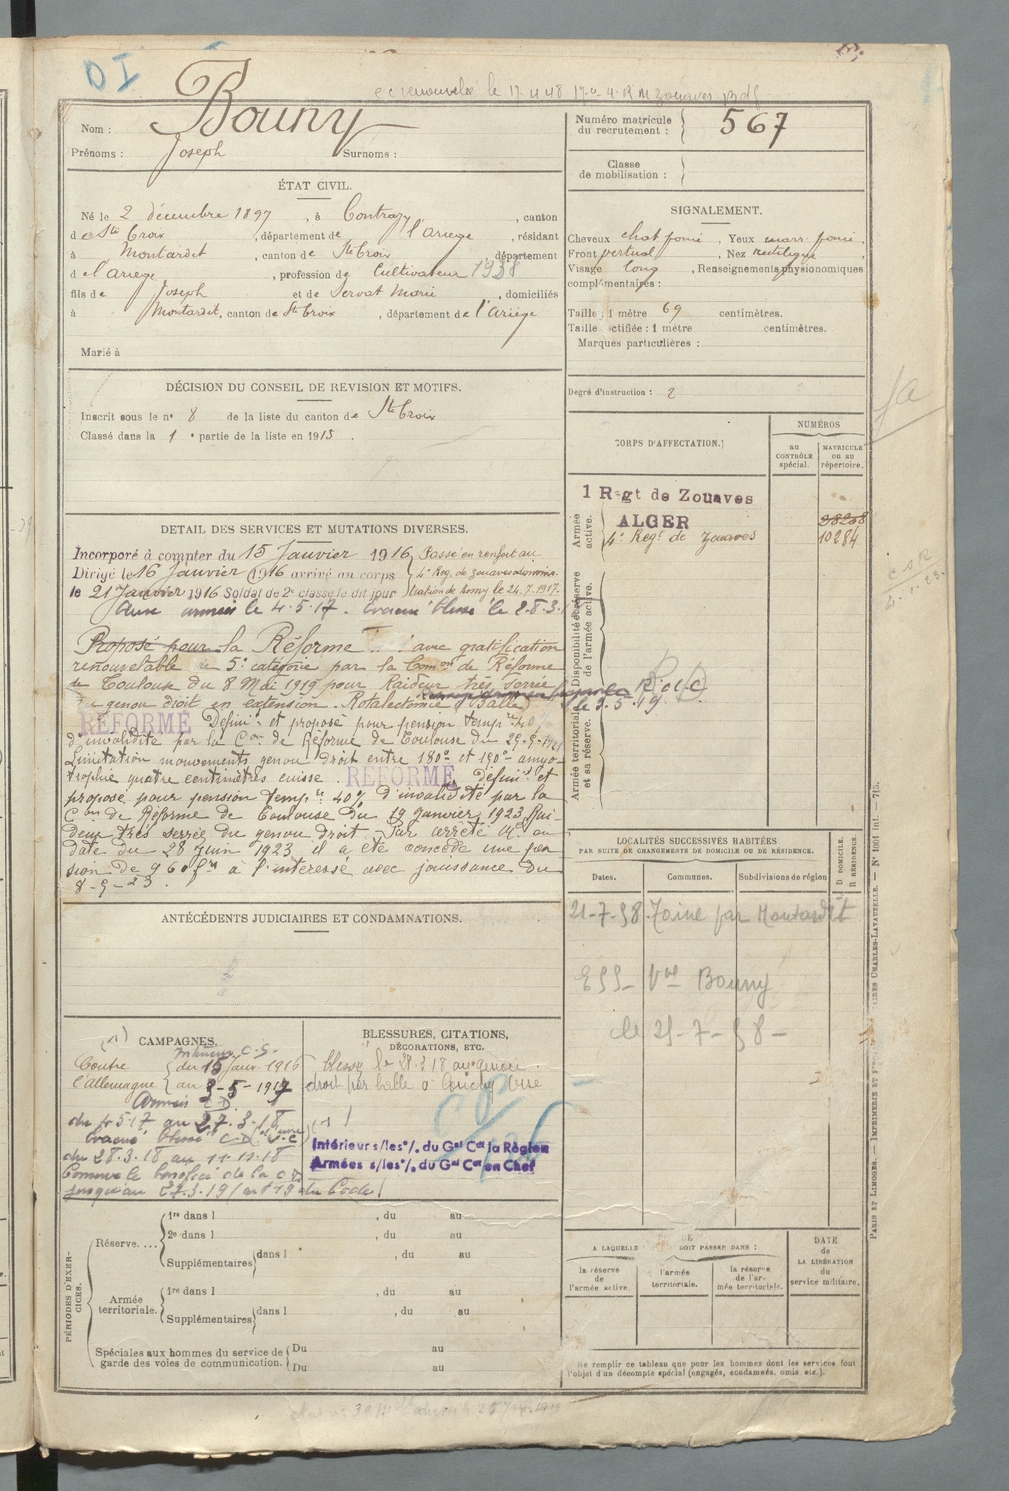 DI
cc renouvelée le 17.4.48 4. R M Zouaves
Bouny
Nom :
Prénoms : Joseph Surnoms :
Numéro matricule du recrutement : 567
Classe de mobilisation :
ÉTAT CIVIL.
Né le 2 décembre 1897, à Contrazy, canton
de Ste Croix, département de l'Ariège, résidant
à Montardit, canton de Ste Croix, département
de l'Ariège, profession de Cultivateur 1938
fils de Joseph et de Servat Marie, domiciliés
à Montardit, canton de Ste Croix, département de l'Ariège
Marié à
SIGNALEMENT.
Cheveux chat foncé, Yeux marr. foncé,
Front vertical, Nez rectiligne,
Visage long, Renseignements physionomiques
complémentaires :
Taille : 1 mètre 69 centimètres.
Taille rectifiée : 1 mètre centimètres.
Marques particulières :
Degré d'instruction : 2
DÉCISION DU CONSEIL DE REVISION ET MOTIFS.
Inscrit sous le n° 8 de la liste du canton de Ste Croix
Classé dans la 1e partie de la liste en 1915.
CORPS D'AFFECTATION.
NUMÉROS
AU CONTRÔLE spécial.
MATRICULE OU AU répertoire.
Armée active.
1 Rgt de Zouaves
ALGER
4e Regt de Zouaves
10284
Disponibilité et réserve de l'armée active.
Armée territoriale et sa réserve.
DETAIL DES SERVICES ET MUTATIONS DIVERSES.
Incorporé à compter du 15 Janvier 1916 Passé en renfort au
Dirigé le 16 Janvier 1916 arrivé au corps 4e Reg. de zouaves
le 21 Janvier 1916 Soldat de 2e classe le dit jour le 24.7.1917.
Aux armées le 4.5.17. Evacué blessé le 28.3.
Proposé pour la Réforme avec gratification
renouvelable 5e catégorie par la Comon de Réforme
de Toulouse du 8 Mai 1919 pour Raideur très serrée
du genou droit en extension. Patalectomie (Balle)
le 9.5.19.
RÉFORMÉ Défini: et proposé pour pension tempre 40
d'invalidité par la Con de Réforme de Toulouse du 29-9-1921
Limitation mouvements genou droit entre 180° et 190° amyo-
trophie quatre centimètres cuisse. RÉFORMÉ défini.t et
proposé pour pension tempre 40% d'invalidité par la
Con de Réforme de Toulouse du 19 Janvier 1923 Rai-
deur très serrée du genou droit - Par arrêté Mel en
date du 28 Juin 1923 il a été concédé une pen
sion de 960 frs à l'intéressé avec jouissance du
8-9-23.
LOCALITÉS SUCCESSIVES HABITÉES
PAR SUITE DE CHANGEMENTS DE DOMICILE OU DE RÉSIDENCE.
Dates. Communes. Subdivisions de région D DOMICILE. R RÉSIDENCE.
21-7-58 par Montardit
ESS- Vve Bouny
le 25-7-58-
ANTÉCÉDENTS JUDICIAIRES ET CONDAMNATIONS.
CAMPAGNES.
(1)
Intérieur C.S.
Contre du 15 Janv. 1916
l'Allemagne au 3-5-1917
Armées CD
du 4.5.17 au 27.3.18
Evacué blessé CD
du 28.3.18 au 11.11.18
Conserve le bénéfice de la C.D
jusqu'au 27.3.19 (art 19 du Code)
BLESSURES, CITATIONS, DÉCORATIONS, ETC.
blessé le 28.3.18 au genou
droit par balle à Oise
Intérieur s/les o/. du Gal Ct la Région
Armées s/les o/. du Gal Ct en Chef
PÉRIODES D'EXERCICES.
Réserve....
1re dans l , du au
2e dans l , du au
Supplémentaires dans l , du au
Armée territoriale.
1re dans l , du au
Supplémentaires dans l , du au
Spéciales aux hommes du service de garde des voies de communication.
Du au
Du au
A LAQUELLE DOIT PASSER DANS :
la réserve de l'armée active.
l'armée territoriale.
la réserve de l'armée territoriale.
DATE de LA LIBÉRATION du service militaire.
Ne remplir ce tableau que pour les hommes dont les services font
l'objet d'un décompte spécial (engagés, condamnés, omis etc.).
PARIS ET LIMOGES. — IMPRIMERIE ET CHARLES-LAVAUZELLE. — N° 1001 int. — 715.